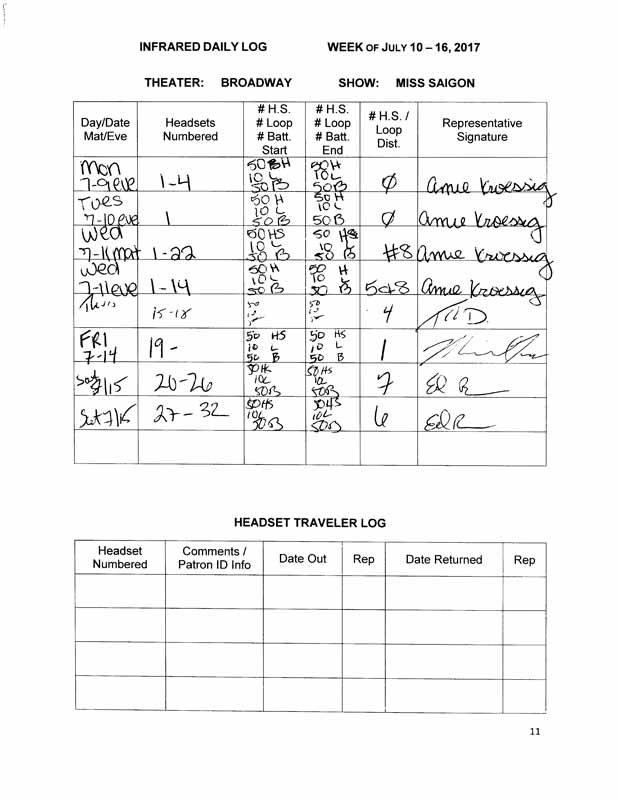 INFRARED DAILY LOG WEEK OF JULY 10 – 16, 2017
THEATER: BROADWAY SHOW: MISS SAIGON
Day/Date Mat/Eve Headsets Numbered # H.S. # Loop # Batt. Start # H.S. # Loop # Batt. End # H.S. / Loop Dist. Representative Signature
Mon 7-9 eve 1-4 50 H 10 L 50 B 50 H 10 L 50 B 0 Amie Kroessig
Tues 7-10 eve 1 50 H 10 L 50 B 50 H 10 L 50 B 0 Amie Kroessig
Wed 7-11 mat 1-22 50 HS 10 L 50 B 50 HS 10 L 50 B #8 Amie Kroessig
Wed 7-11 eve 1-14 50 H 10 L 50 B 50 H 10 L 50 B Amie Kroessig
Thurs 15-18 50 50 4
FRI 7-14 19- 50 HS 10 L 50 B 50 HS 10 L 50 B 1
Sat 7/15 20-26 10L 50B 50HS 10L 50B 7 Ed R
Sat 7/15 27-32 50HS 10L 50B 50HS 10L 50B 6 Ed R
HEADSET TRAVELER LOG
Headset Numbered Comments / Patron ID Info Date Out Rep Date Returned Rep
11